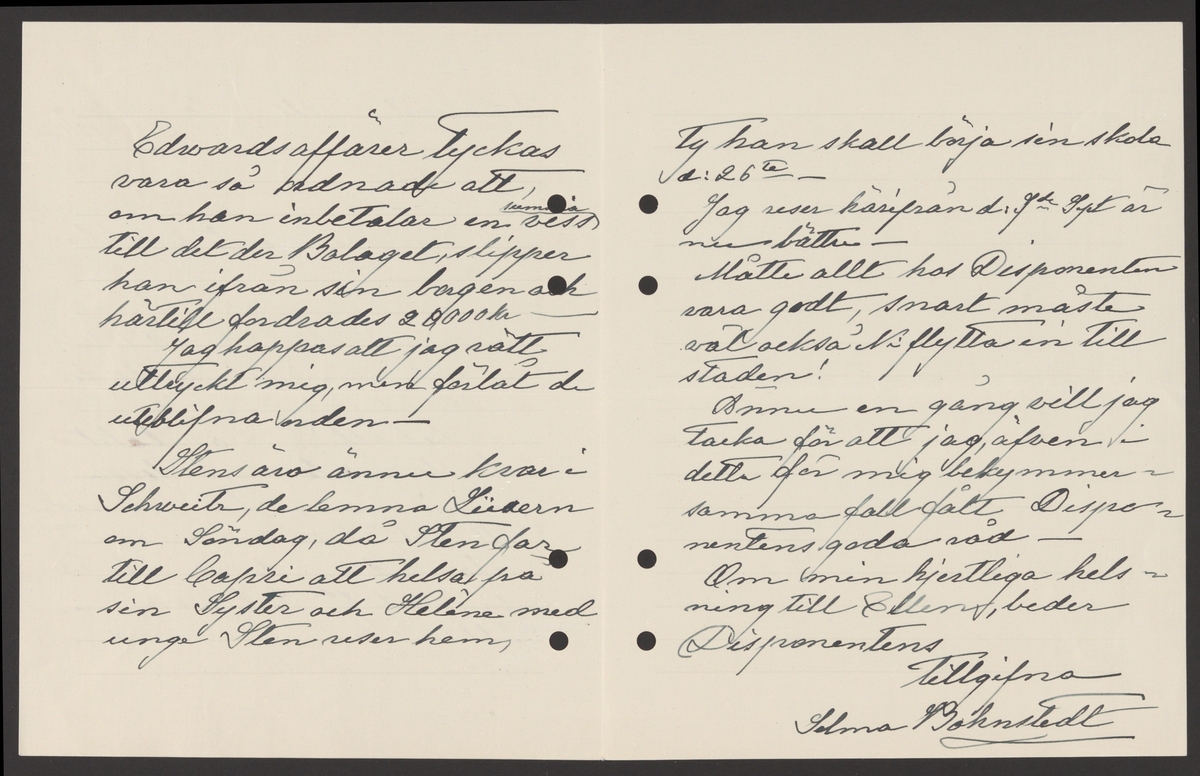 Edwards affärer tyckas
vara så ordnade att,
om han inbetalar en viss summa
till det der Bolaget, slipper
han ifrån sin borgen och
härtill fordrades 20,000 kr —
Jag hoppas att jag rätt
uttryckt mig, men förlåt de
uteblifna orden —
Stens äro ännu kvar i
Schweitz, de lemna Luzern
om Söndag, då Sten far
till Capri att helsa på
sin Syster och Helène med
unge Sten reser hem,
ty han skall börja sin skola
d: 26te —
Jag reser härifrån d: Sept är
nu bättre —
Måtte allt hos Disponenten
vara godt, snart måste
väl också Ni flytta in till
staden!
Ännu en gång vill jag
tacka för att jag, äfven i
detta för mig bekymmer-
samma fall fått Dispo-
nentens goda råd —
Om min hjertliga hels-
ning till Ellen, beder
Disponentens
tillgifna
Selma Bohnstedt